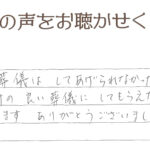 の声をお聴かせく
葬儀は してあげられなかっ
の良い葬儀に してもらえた
ます ありがとうございまし